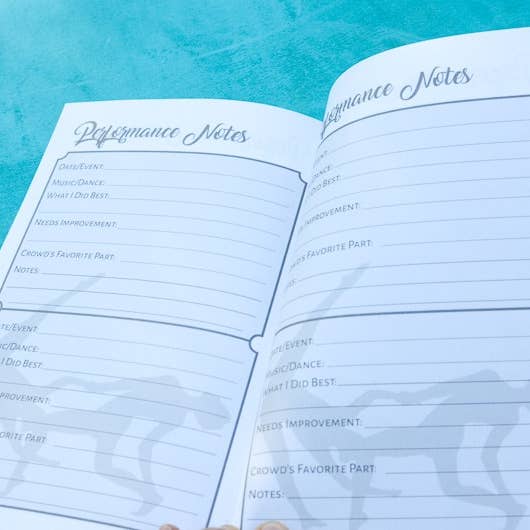 Performance Notes
Date/Event:
Music/Dance:
What I Did Best:
Needs Improvement:
Crowd's Favorite Part:
Notes:
Date/Event:
Music/Dance:
What I Did Best:
Improvement:
Favorite Part
Performance Notes
Did Best:
Improvement:
Favorite Part:
Date/Event:
Music/Dance:
What I Did Best:
Needs Improvement:
Crowd's Favorite Part:
Notes: